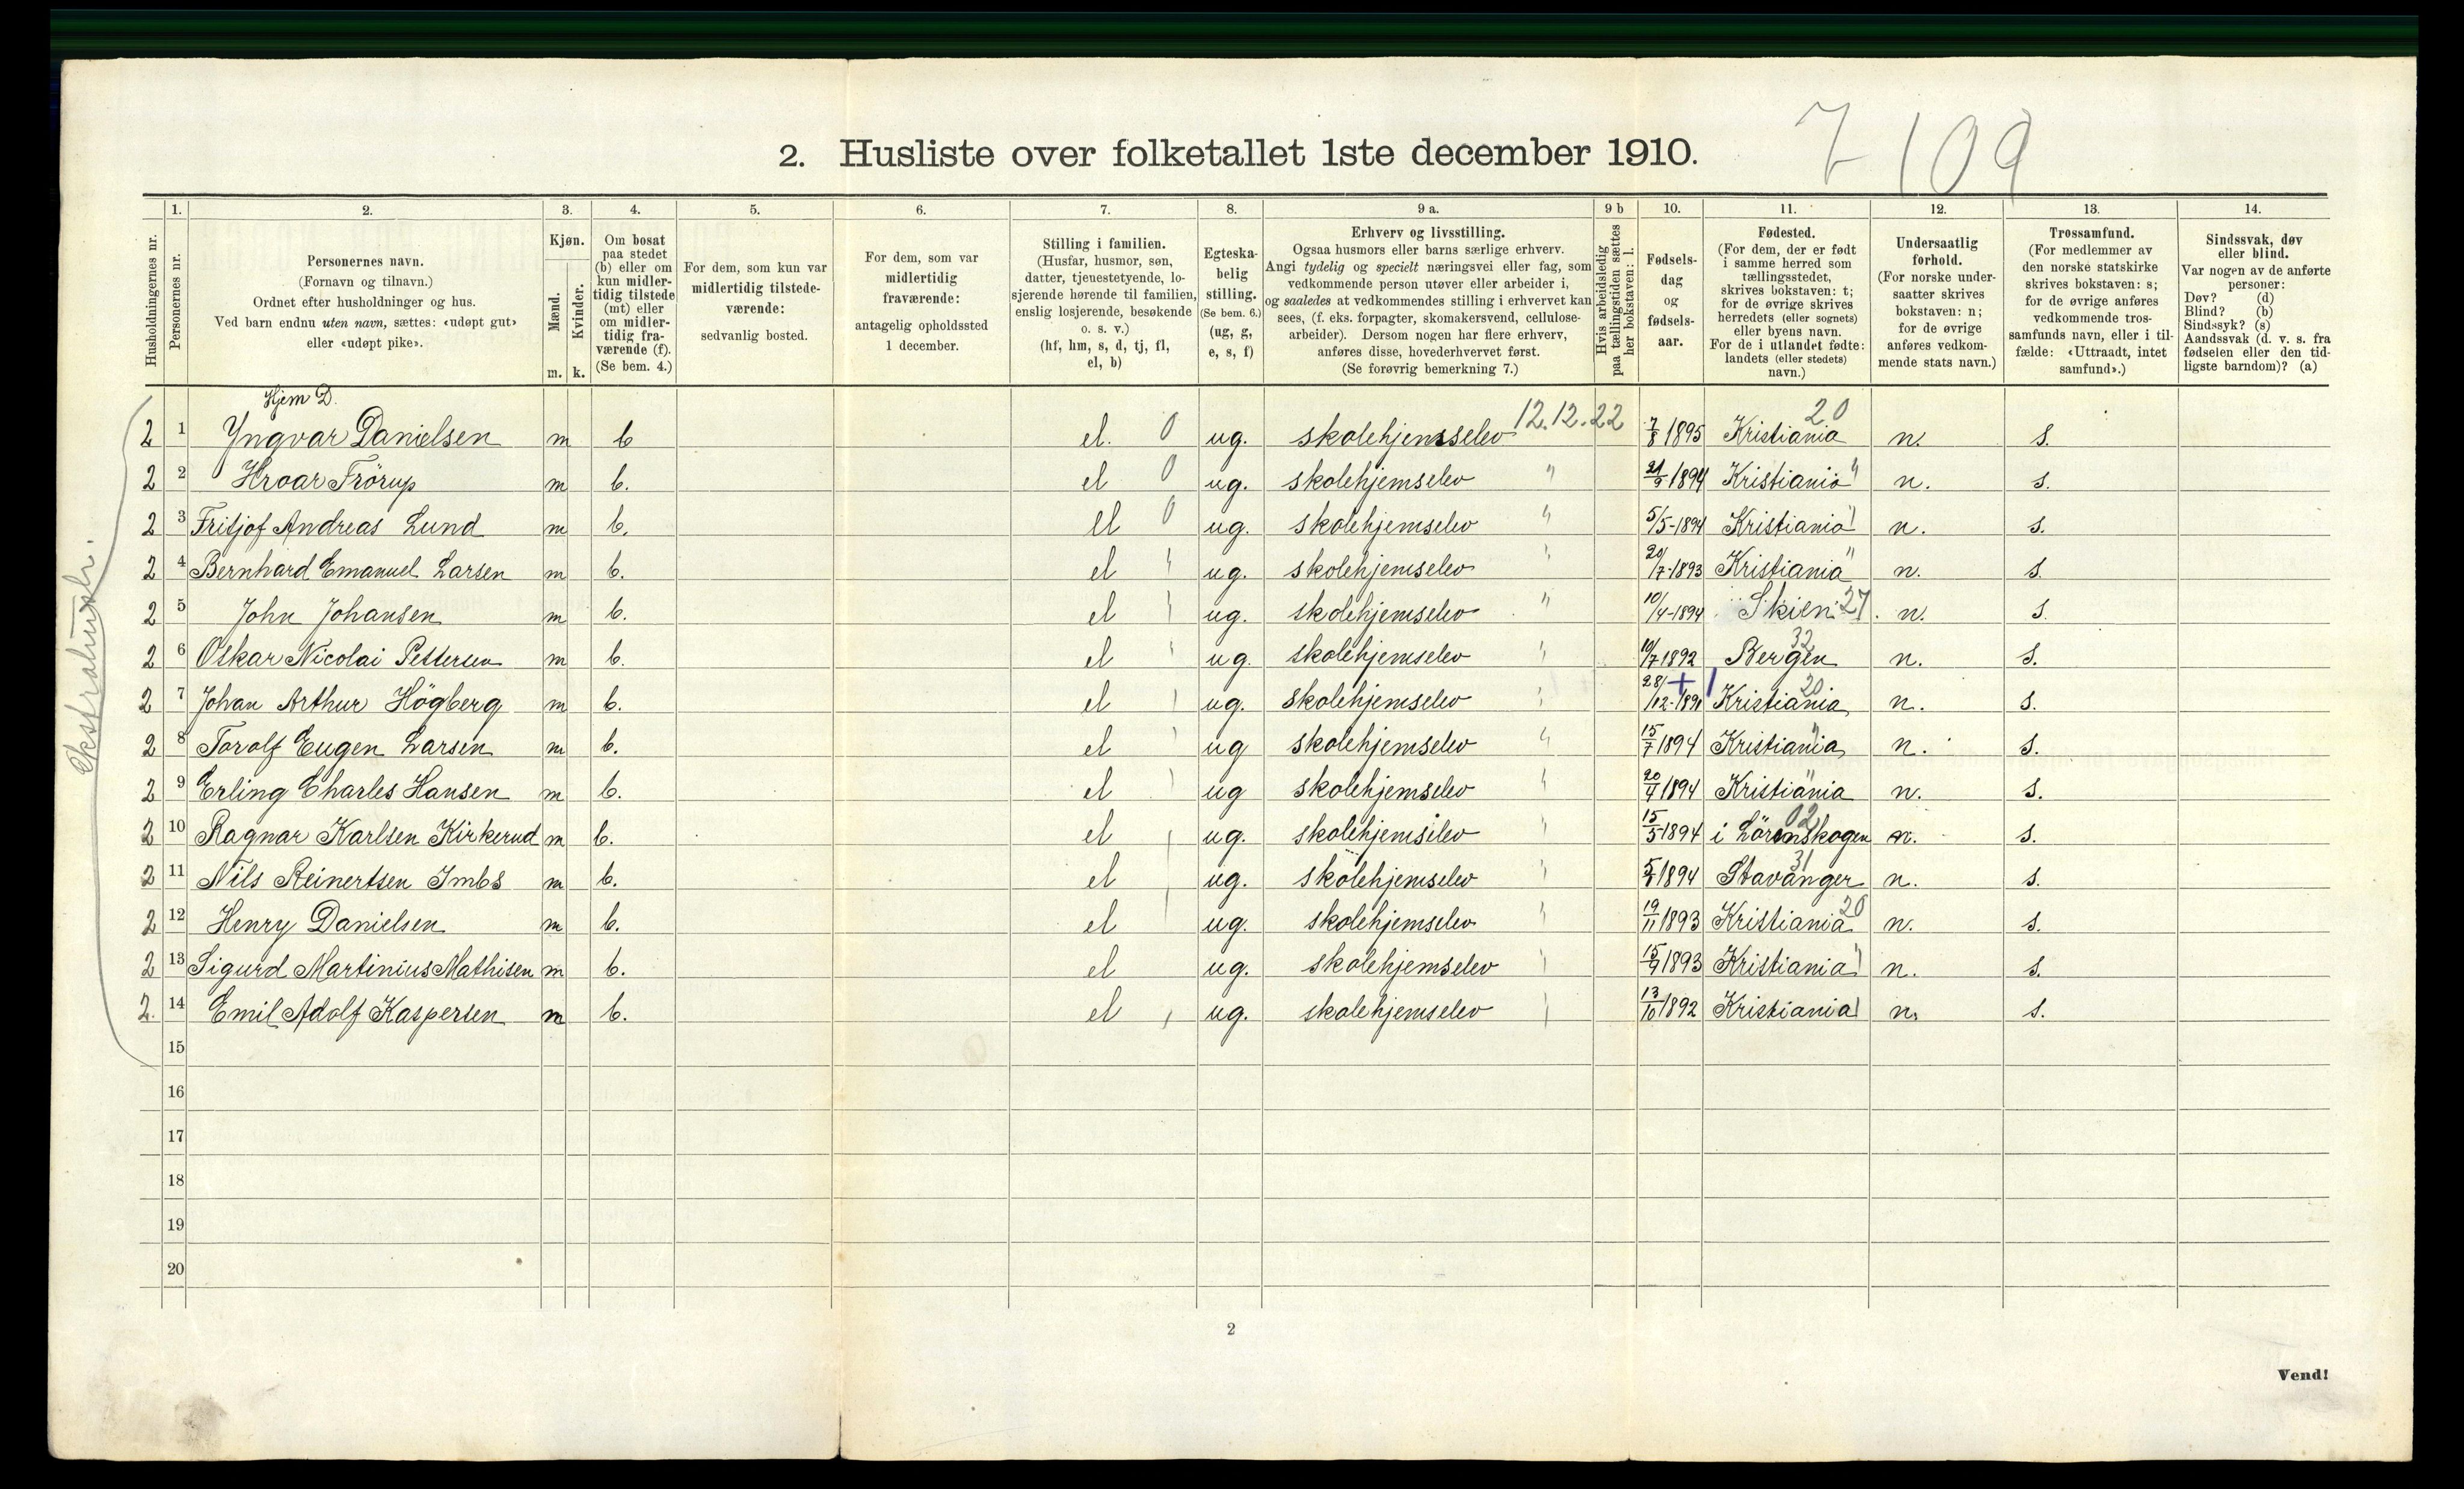 7 109
2. Husliste over folketallet 1ste december 1910.
1. 2. 3. 4. 5. 6. 7. 8. 9 a. 9 b 10. 11. 12. 13. 14.
Husholdningernes nr.
Personernes nr.
Personernes navn.
(Fornavn og tilnavn.)
Ordnet efter husholdninger og hus.
Ved barn endnu uten navn, sættes: «udøpt gut»
eller «udøpt pike».
Kjøn.
Mænd.
Kvinder.
m. k.
Om bosat
paa stedet
(b) eller om
kun midler-
tidig tilstede
(mt) eller
om midler-
tidig fra-
værende (f).
(Se bem. 4.)
For dem, som kun var
midlertidig tilstede-
værende:
sedvanlig bosted.
For dem, som var
midlertidig
fraværende:
antagelig opholdssted
1 december.
Stilling i familien.
(Husfar, husmor, søn,
datter, tjenestetyende, lo-
sjerende hørende til familien,
enslig losjerende, besøkende
o. s. v.)
(hf, hm, s, d, tj, fl,
el, b)
Egteska-
belig
stilling.
(Se bem. 6.)
(ug, g,
e, s, f)
Erhverv og livsstilling.
Ogsaa husmors eller barns særlige erhverv.
Angi tydelig og specielt næringsvei eller fag, som
vedkommende person utøver eller arbeider i,
og saaledes at vedkommendes stilling i erhvervet kan
sees, (f. eks. forpagter, skomakersvend, cellulose-
arbeider). Dersom nogen har flere erhverv,
anføres disse, hovederhvervet først.
(Se forøvrig bemerkning 7.)
Hvis arbeidsledig
paa tællingstiden sættes
her bokstaven: l.
Fødsels-
dag
og
fødsels-
aar.
Fødested.
(For dem, der er født
i samme herred som
tællingsstedet,
skrives bokstaven: t;
for de øvrige skrives
herredets (eller sognets)
eller byens navn.
For de i utlandet fødte:
landets (eller stedets)
navn.)
Undersaatlig
forhold.
(For norske under-
saatter skrives
bokstaven: n;
for de øvrige
anføres vedkom-
mende stats navn.)
Trossamfund.
(For medlemmer av
den norske statskirke
skrives bokstaven: s;
for de øvrige anføres
vedkommende tros-
samfunds navn, eller i til-
fælde: «Uttraadt, intet
samfund».)
Sindssvak, døv
eller blind.
Var nogen av de anførte
personer:
Døv? (d)
Blind? (b)
Sindssyk? (s)
Aandssvak (d. v. s. fra
fødselen eller den tid-
ligste barndom)? (a)
Ekstrahush.
Hjem D.
12.12.22 20
2 1 Yngvar Danielsen m b el. 0 ug. skolehjemselev 7/8 1895 Kristiania n. s.
2 2 Hroar Frörup m b. el 0 ug. skolehjemselev " 1894 Kristiania " n. s.
2 3 Fritjof Andreas Lund m b. el 0 ug. skolehjemselev " 5/5-1894 Kristiania " n. s.
2 4 Bernhard Emanuel Larsen m b. el " ug. skolehjemselev " 20/7-1893 Kristiania " n. s.
2 5 John Johansen m b. el " ug. skolehjemselev " 10/4-1894 Skien 27 n. s.
2 6 Oskar Nicolai Pettersen m b. el " ug. skolehjemselev " 10/7 1892 Bergen 32 n. s.
2 7 Johan Arthur Högberg m b. el " ug. skolehjemselev " 28/12-1891 Kristiania 20 n. s.
2 8 Torolf Eugen Larsen m b. el " ug skolehjemselev " 15/7 1894 Kristiania " n. s.
2 9 Erling Charles Hansen m b. el " ug skolehjemselev " 1894 Kristiania " n. s.
2 10 Ragnar Karlsen Kirkerud m b. el " ug. skolehjemselev " 15/5 1894 i Lörenskogen 02 n. s.
2 11 Nils Reinertsen Imbs m b. el " ug. skolehjemselev " 1894 Stavanger 31 n. s.
2 12 Henry Danielsen m b. el " ug. skolehjemselev " 19/11 1893 Kristiania 20 n. s.
2 13 Sigurd Martinius Mathisen m b. el ug. skolehjemselev " 15/9 1893 Kristiania " n. s.
2. 14 Emil Adolf Kaspersen m b. el " ug. skolehjemselev " 13/10 1892 Kristiania " n. s.
15
16
17
18
19
20
2
Vend!